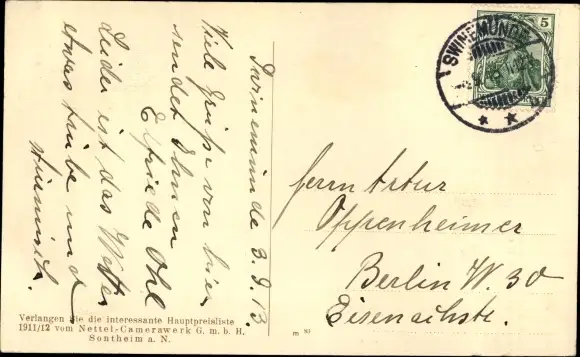 Swinemünde 3.9.13.
Viele Grüße von hier
sendet Ihnen
Elfriede Ohl
Leider ist das Wetter
etwas trübe und
stürmisch.
Verlangen Sie die interessante Hauptpreisliste
1911/12 vom Nettel-Camerawerk G. m. b. H.
Sontheim a. N.
m 83
SWINEMÜNDE
5
Herrn Artur
Oppenheimer
Berlin W. 30
Eisenachstr.